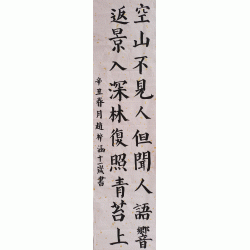 空山不見人但聞人語響
返景入深林復照青苔上
辛丑春月趙梓涵十二歲書